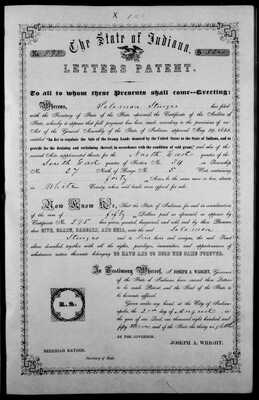 The State of Indiana.
LETTERS PATENT.
To all to whom these Presents shall come—Greeting:
Whereas, Solomon Sturges has filed
with the Secretary of State of the State aforesaid the Certificate of the Auditor of
State, whereby it appears that full payment has been made according to the provisions of an
Act of the General Assembly of the State of Indiana approved May
entitled "An Act to regulate the Sale of the Swamp Lands donated by the United States to the State of Indiana, and to
provide for the draining and reclaiming thereof, in accordance with the condition of said grant," and also of the
several Acts supplemental thereto for the North East quarter of the
South East quarter of Section No. 34 in Township
No. 27 North of Range No. 5 West containing
forty Acres, be the same more or less, situate
in White County, when said lands were offered for sale.
Now Know Ye, that the State of Indiana for and in consideration
of the sum of fifty Dollars paid as aforesaid as appears by
Certificate No. 595 has given, granted, bargained and sold and by these Presents
doe GIVE, GRANT, BARGAIN, AND SELL, unto the said Solomon
Sturges and to his heirs and assigns, the said Tract
above described together with all the rights, privileges, immunities, and appurtenances of
whatsoever nature thereunto belonging TO HAVE AND TO HOLD THE SAME FOREVER.
L.S.
In Testimony Whereof, I JOSEPH A. WRIGHT, Governor
of the State of Indiana have caused these Letters
to be made Patent, and the Seal of the State
to be hereunto affixed.
Given under my hand at the City of Indianapolis,
the 2nd day of August in
the year of our Lord, one thousand eight hundred and
fifty three and of the State the thirty eighth
BY THE GOVERNOR,
JOSEPH A. WRIGHT.
NEHEMIAH HAYDEN,
Secretary of State.